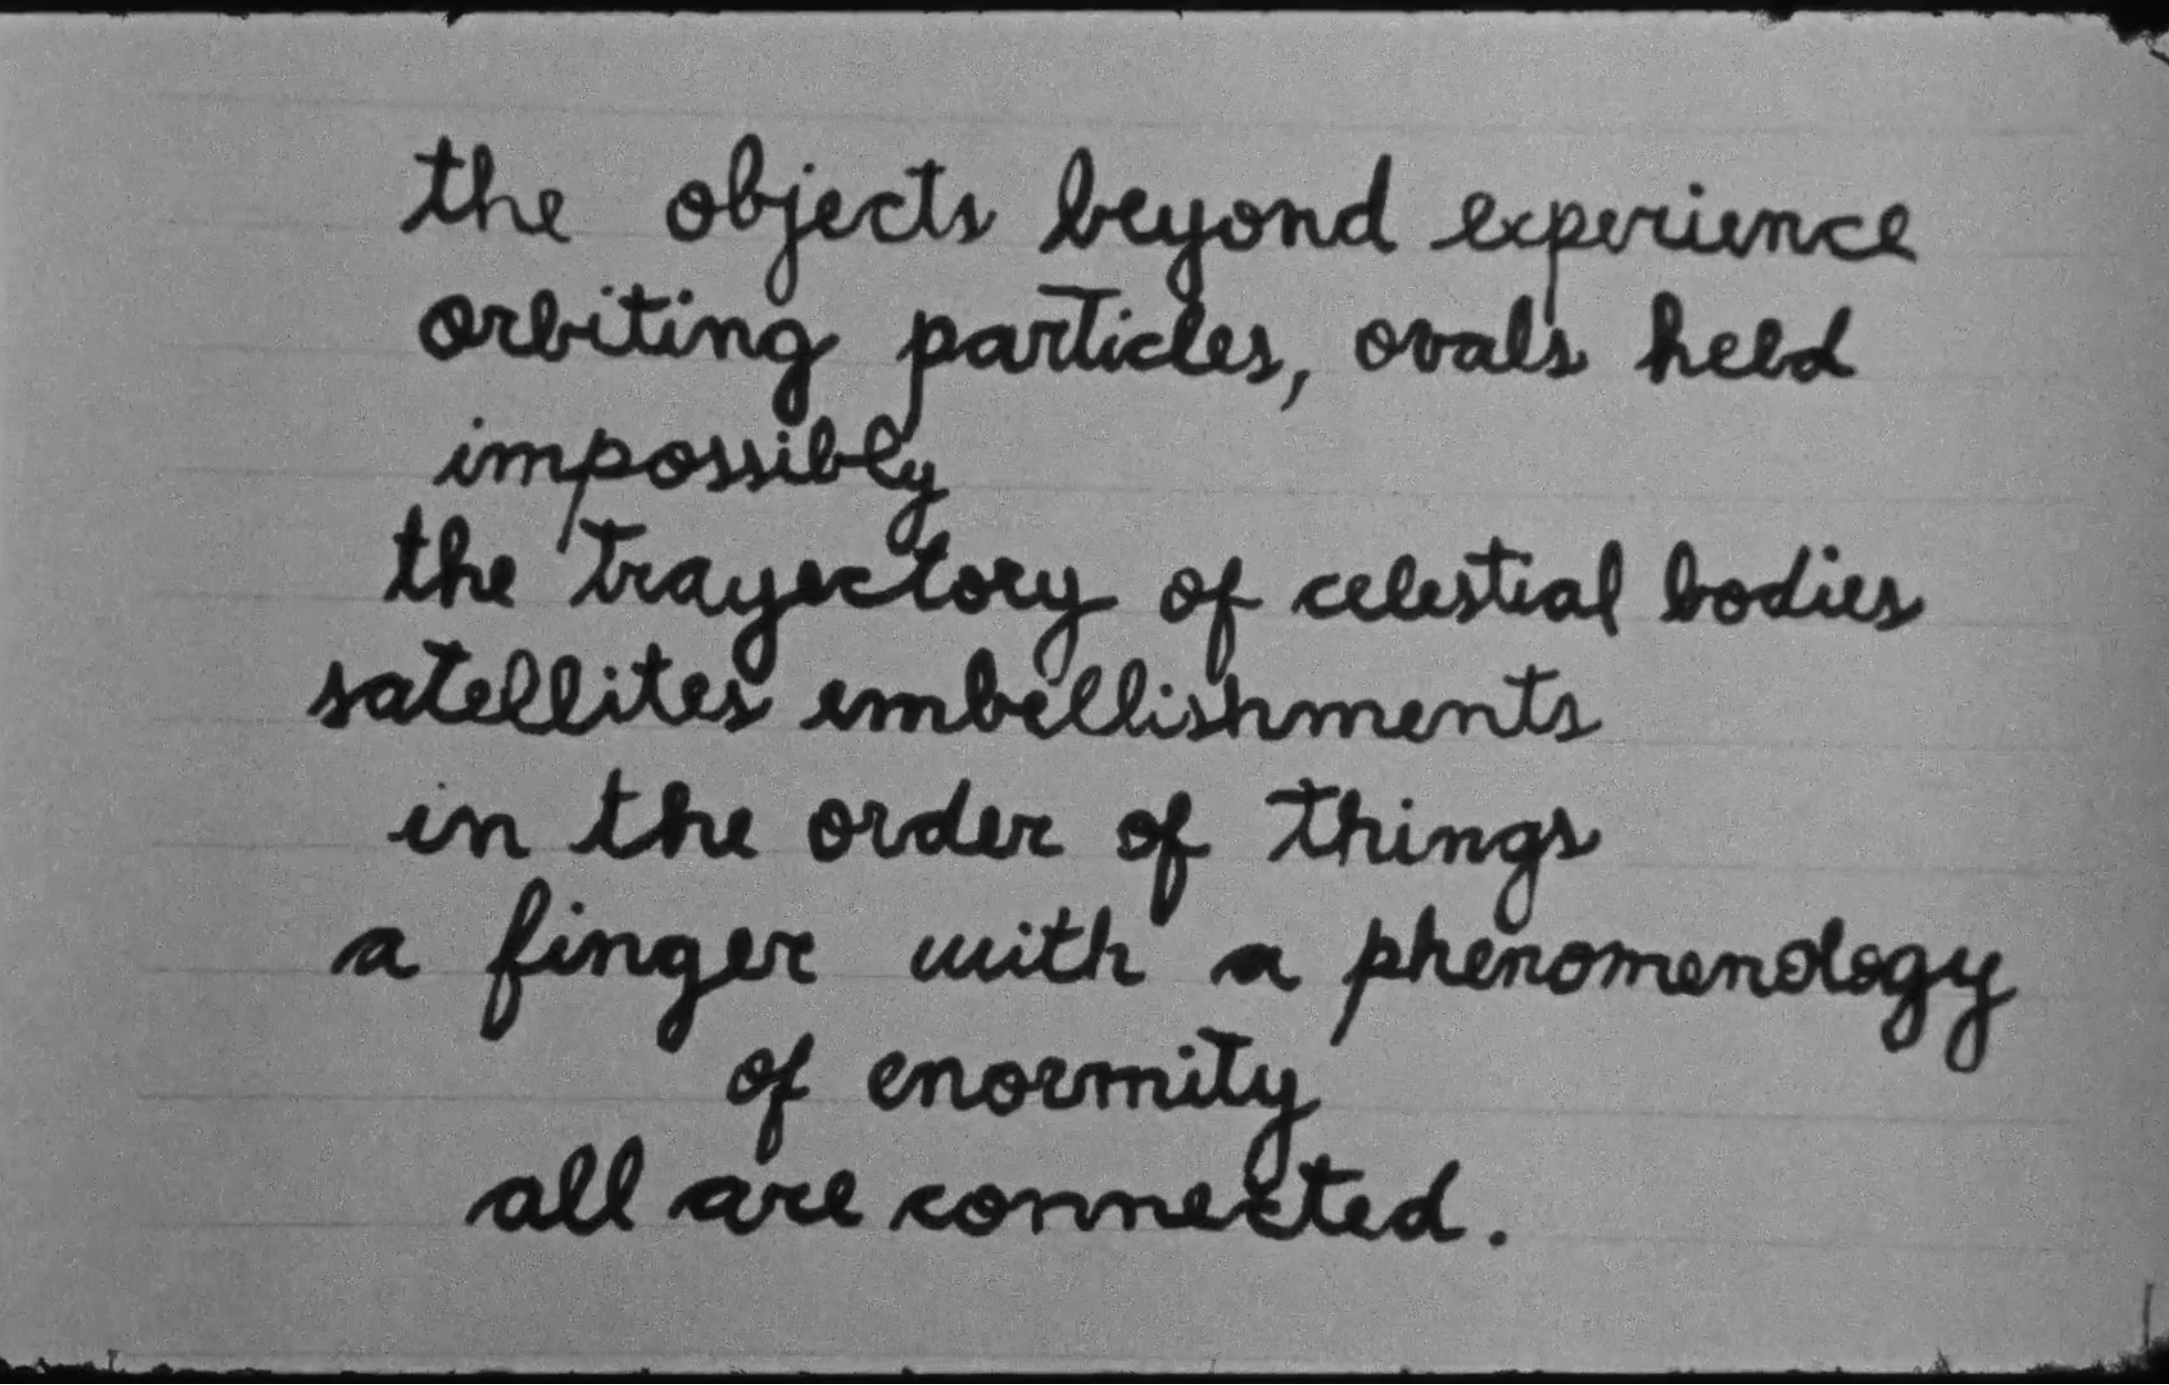 the objects beyond experience
orbiting particles, ovals held
impossibly
the trayectory of celestial bodies
satellites embellishments
in the order of things
a finger with a phenomenology
of enormity
all are connected.